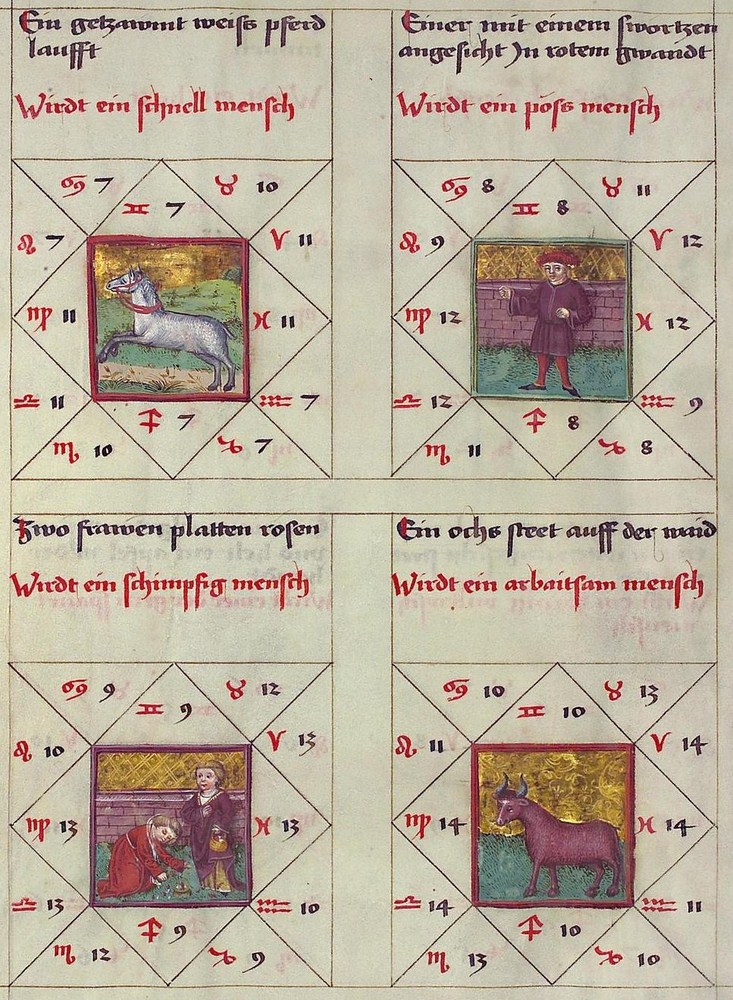 Ein getzawmt weiss pferd
laufft
Wirdt ein schnell mensch
♋ 7
♊ 7
♉ 10
♌ 7
♈ 11
♍ 11
♓ 11
♎ 11
♒ 7
♏ 10
♐ 7
♑ 7
Einer mit einem swortzen
angesicht Jn rotem gwandt
Wirdt ein pöss mensch
♋ 8
♊ 8
♉ 11
♌ 9
♈ 12
♍ 12
♓ 12
♎ 12
♒ 9
♏ 11
♐ 8
♑ 8
Zwo frawen platten rosen
Wirdt ein schimpfig mensch
♋ 9
♊ 9
♉ 12
♌ 10
♈ 13
♍ 13
♓ 13
♎ 13
♒ 10
♏ 12
♐ 9
♑ 9
Ein ochs steet auff der waid
Wirdt ein arbaitsam mensch
♋ 10
♊ 10
♉ 13
♌ 11
♈ 14
♍ 14
♓ 14
♎ 14
♒ 11
♏ 13
♐ 10
♑ 10